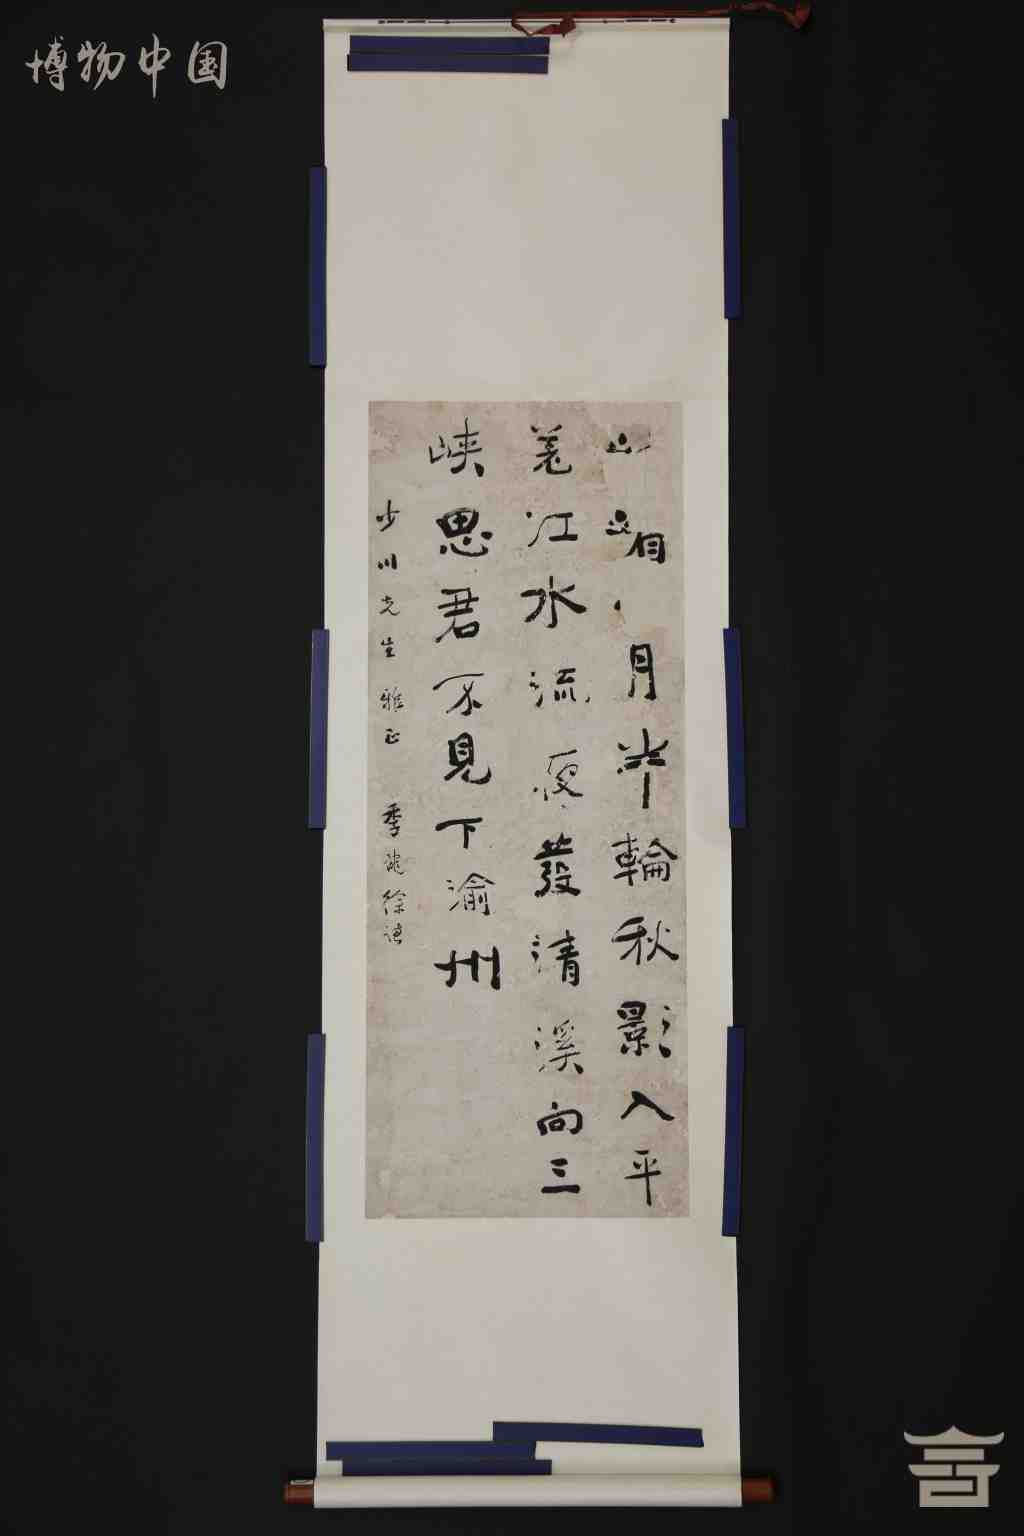 博物中国
月半輪秋影入平
羌江水流夜發清溪向三
峽思君不見下渝州
少川先生雅正 季龍徐謙